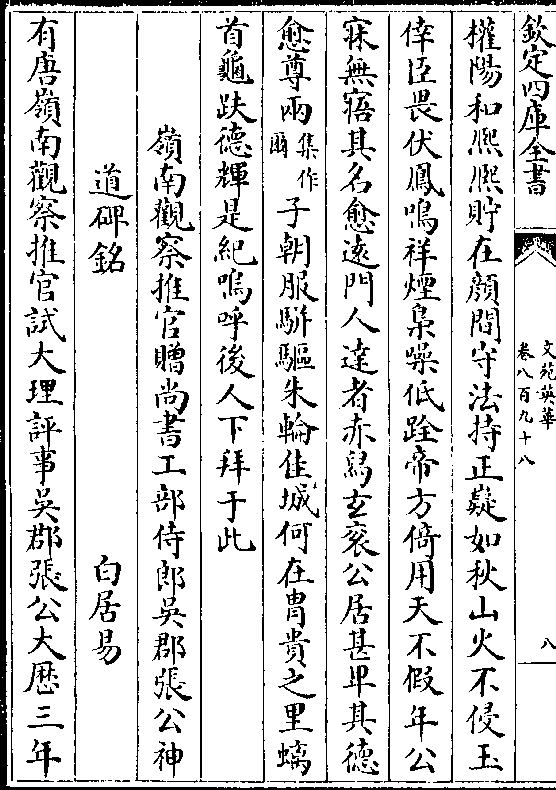 欽定四庫全書
文苑英華
卷八百九十八
八
權陽和熈熈貯在顔間守法持正嶷如秋山火不侵玉
倖臣畏伏鳳鳴祥煙梟噪低跧帝方倚用天不假年公
寐無寤其名愈遠門人達者赤舄玄衮公居甚卑其德
愈尊兩集作爾子朝服駢驅朱輪佳城何在胄貴之里螭
首龜趺德輝是紀嗚呼後人下拜于此
嶺南觀察推官贈尚書工部侍郎吳郡張公神
道碑銘
白居易
有唐嶺南觀察推官試大理評事吳郡張公大厯三年